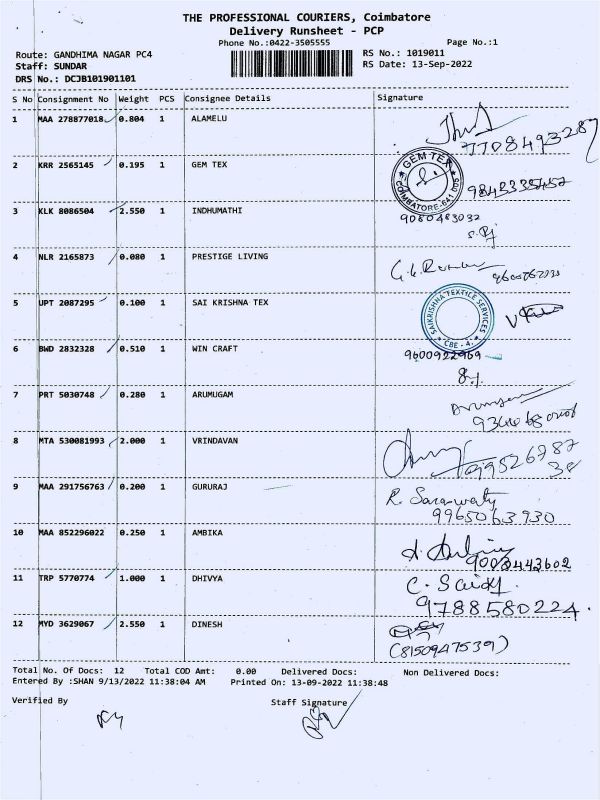 THE PROFESSIONAL COURIERS, Coimbatore
Delivery Runsheet - PCP
Phone No.:0422-3505555 Page No.:1
Route: GANDHIMA NAGAR PC4 RS No.: 1019011
Staff: SUNDAR RS Date: 13-Sep-2022
DRS No.: DCJB101901101
S No Consignment No Weight PCS Consignee Details Signature
1 MAA 278877018 0.804 1 ALAMELU
7708493287
2 KRR 2565145 0.195 1 GEM TEX
GEM TEX COIMBATORE-641 005
3 KLK 8086504 2.550 1 INDHUMATHI
9080483032
4 NLR 2165873 0.080 1 PRESTIGE LIVING
5 UPT 2087295 0.100 1 SAI KRISHNA TEX
SAIKRISHNA TEXTILE SERVICES CBE - 4.
6 BWD 2832328 0.510 1 WIN CRAFT
9600922969
7 PRT 5030748 0.280 1 ARUMUGAM
8 MTA 530081993 2.000 1 VRINDAVAN
9 MAA 291756763 0.200 1 GURURAJ
R. Saraswaty
9965063930
10 MAA 852296022 0.250 1 AMBIKA
9003443602
11 TRP 5770774 1.000 1 DHIVYA
9788580224.
12 MYD 3629067 2.550 1 DINESH
(8150947539)
Total No. Of Docs: 12 Total COD Amt: 0.00 Delivered Docs: Non Delivered Docs:
Entered By :SHAN 9/13/2022 11:38:04 AM Printed On: 13-09-2022 11:38:48
Verified By Staff Signature